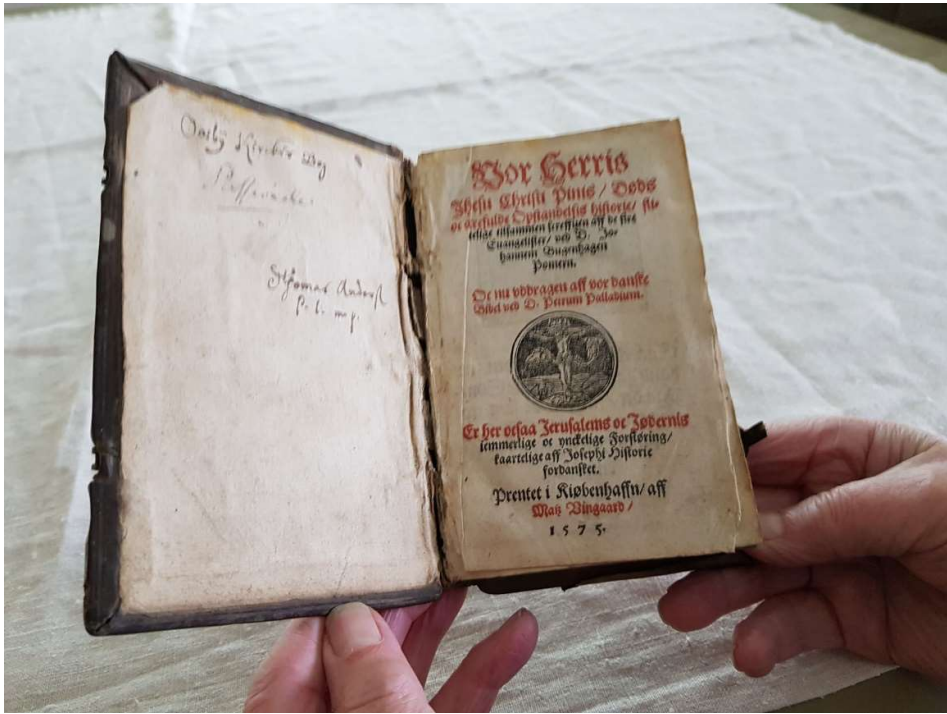 Kircker Bog
Thomas Anders
Vor Herris
Jhesu Christi Pinis / Døds
oc ærefulde Opstandelsis historie / flit-
telige tilsammen screffuen aff de fire
Euangelister / ved D. Jo-
hannem Bugenhagen
Pomern.
Oc nu vddragen aff vor danske
Bibel ved D. Petrum Palladium.
Er her ocsaa Jerusalems oc Jødernis
iemmerlige oc ynckelige Forstøring /
kaartelige aff Josephi Historie
fordansket.
Prentet i Kiøbenhaffn / aff
Matz Vingaard /
1575.